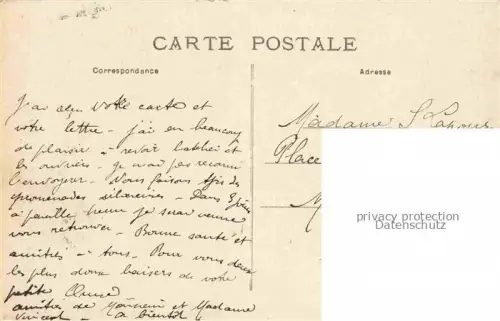 CARTE POSTALE
Correspondance
Adresse
J'ai reçu votre carte et
votre lettre - j'ai eu beaucoup
de plaisir à revoir
et
les ouvriers - je n'ai pas reconnu
l'envoyeur - Nous faisons
des
promenades - Dans 8 jours
à pareille heure je serai venue
vous retrouver - Bonne santé et
amitiés à tous. Pour vous deux
les plus doux baisers de votre
petite
amitiés de Monsieur et Madame
Vincent - à bientôt
Madame
Place
M
privacy protection
Datenschutz